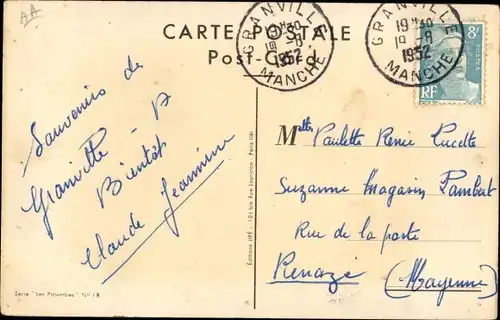 AA
CARTE POSTALE
Post-Card
GRANVILLE
19H30
19-8
1952
MANCHE
GRANVILLE
19H30
19-8
1952
MANCHE
8F
POSTES
RF
Souvenirs de
Granville
Bientôt
Claude Jeannine
Melles Paulette Renée Lucette
Suzanne Magasin Lambert
Rue de la poste
Renazé
(Mayenne)
Série "Les Proverbes" N° 18